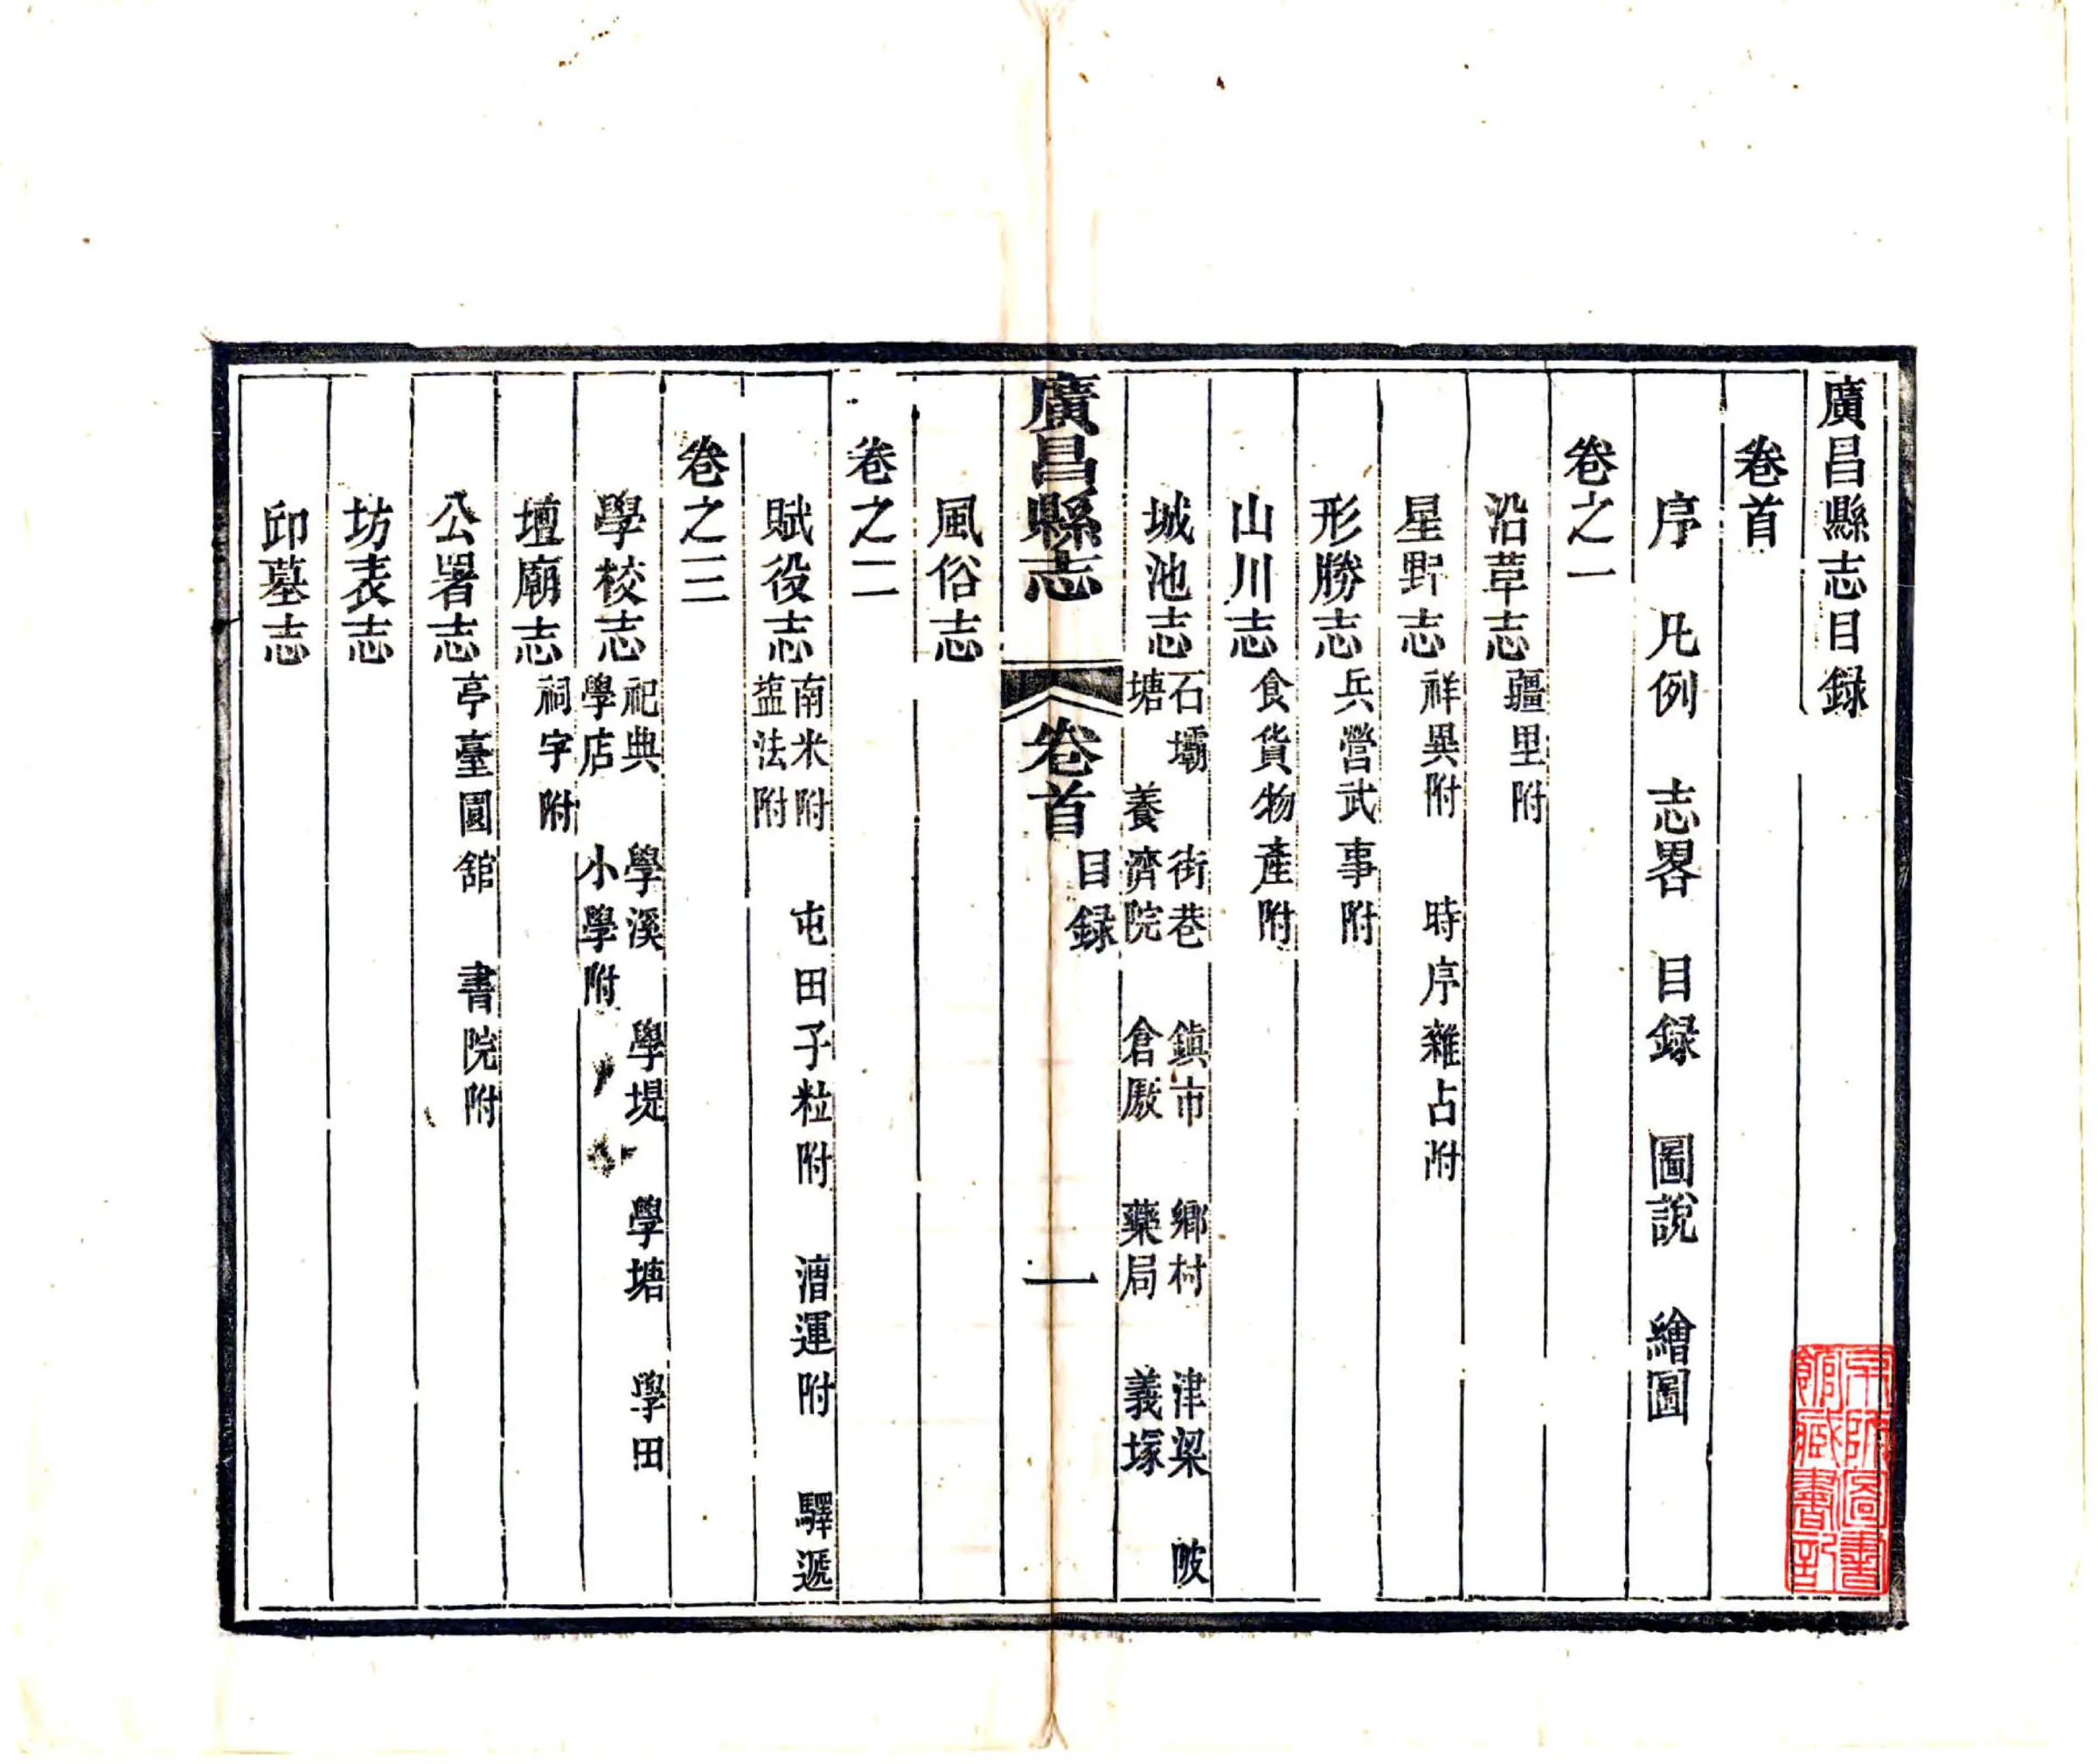 廣昌縣志目録
卷首
序 凡例 志畧 目録 圖說 繪圖
卷之一
沿革志 疆里附
星野志 祥異附 時序雜占附
形勝志 兵營武事附
山川志 食貨物產附
城池志 石壩 街巷 鎮市 鄉村 津梁 陂
塘 養濟院 倉厫 藥局 義塚
廣昌縣志 卷首 目録 一
風俗志
卷之二
賦役志 南米附 屯田子粒附 漕運附 驛遞
盬法附
卷之三
學校志 祀典 學溪 學堤 學塘 學田
學店 小學附
壇廟志 祠宇附
公署志 亭臺園舘 書院附
坊表志
邱墓志